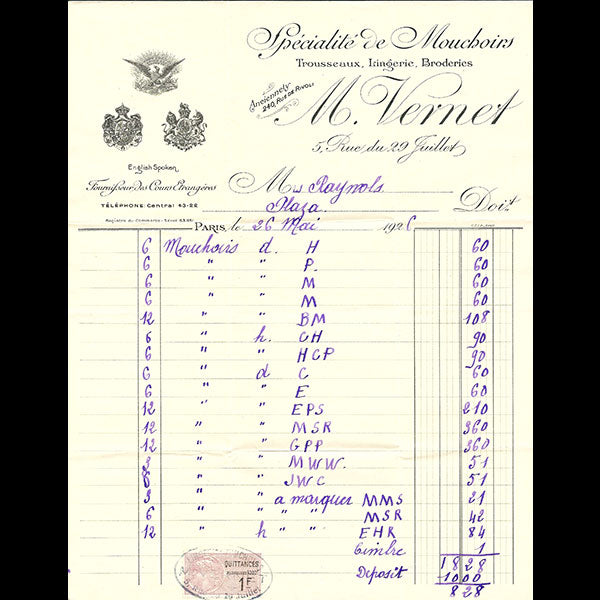 Spécialité de Mouchoirs
Trousseaux, Lingerie, Broderies
Anciennent 240, Rue de Rivoli
M. Vernet
5, Rue du 29 Juillet
English Spoken
Fournisseur des Cours Étrangères
TÉLÉPHONE: Central 43-28
Mrs Raynols
Plaza
Doit
PARIS, le 26 Mai 1926
6 Mouchoirs d. H 60
6 " " P. 60
6 " " M 60
6 " " M 60
12 " " BM 108
6 " h. CH 90
6 " " HCP 90
6 " d C 60
6 " " E 60
12 " " EPS 210
12 " " MSR 360
12 " " GPP 360
3 " " MWW. 51
" " JWC 51
3 " a marquer MMS 21
6 " " " " MSR 42
12 " h " " EHR 84
timbre 1
1828
Deposit 1000
828
QUITTANCES
1F